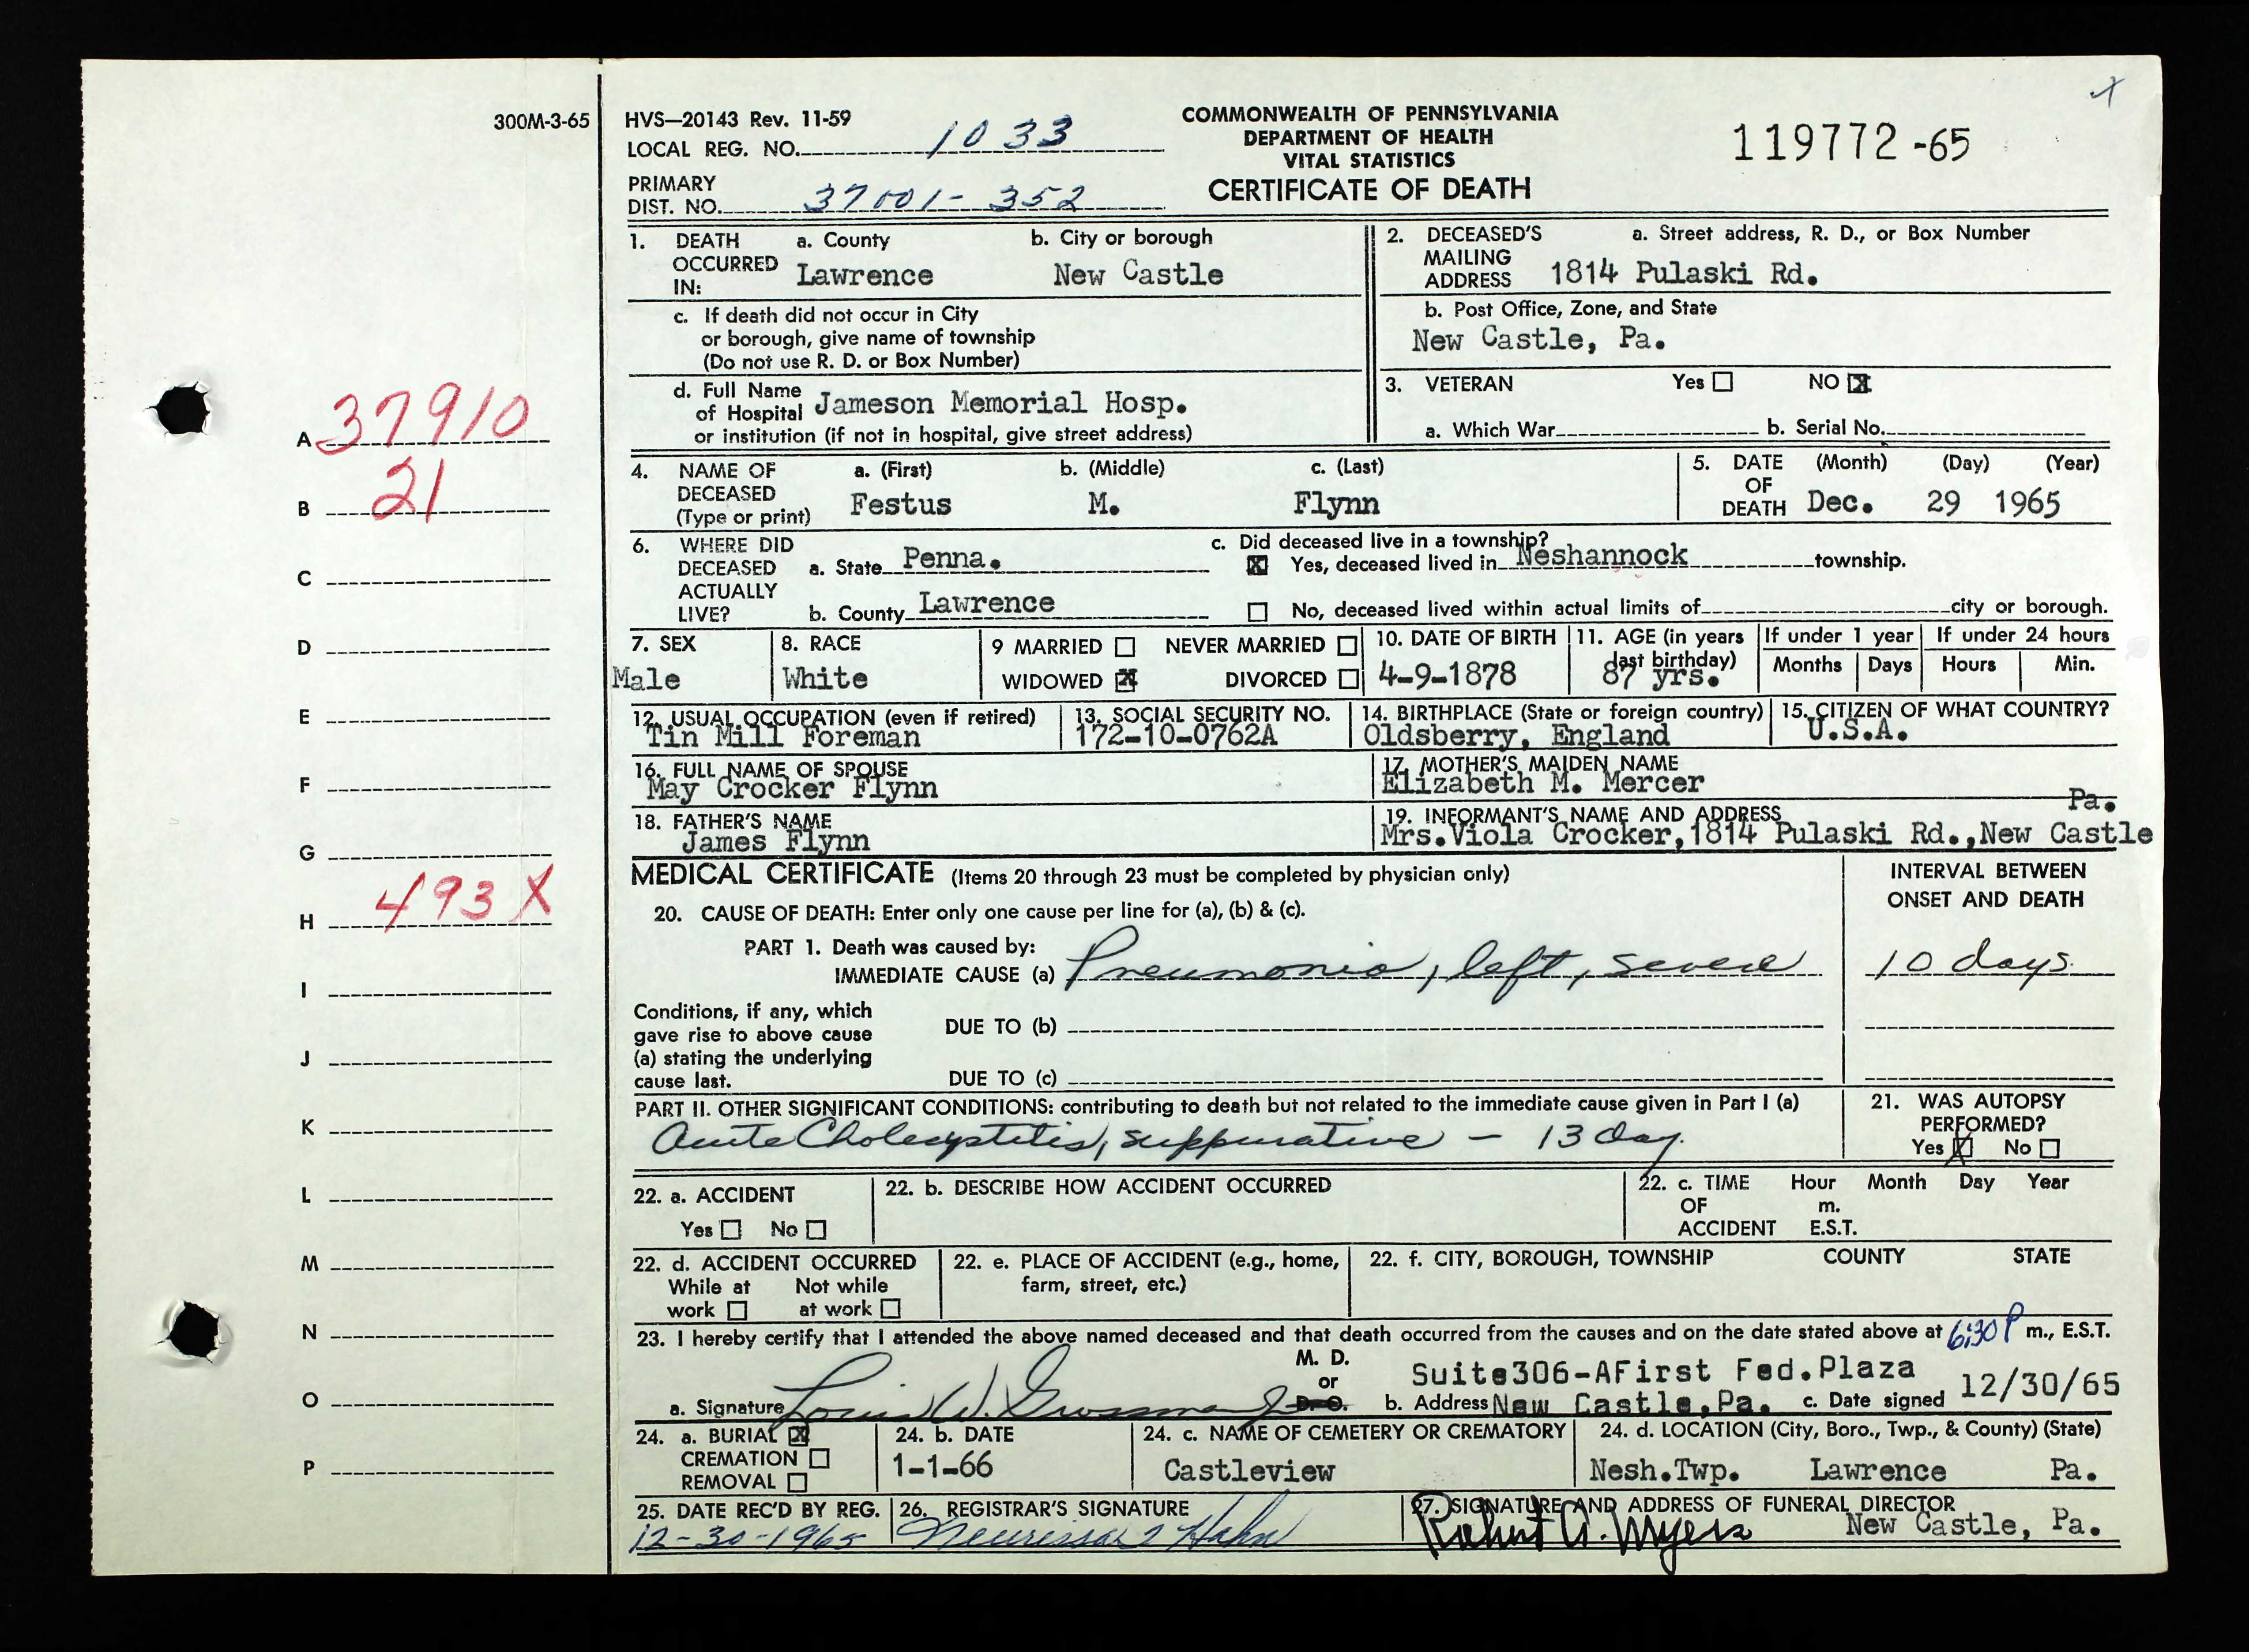 300M-3-65
HVS—20143 Rev. 11-59
LOCAL REG. NO. 1033
PRIMARY
DIST. NO. 37001- 352
COMMONWEALTH OF PENNSYLVANIA
DEPARTMENT OF HEALTH
VITAL STATISTICS
CERTIFICATE OF DEATH
119772 -65
1. DEATH OCCURRED IN: a. County b. City or borough
Lawrence New Castle
c. If death did not occur in City
or borough, give name of township
(Do not use R. D. or Box Number)
d. Full Name
of Hospital Jameson Memorial Hosp.
or institution (if not in hospital, give street address)
2. DECEASED'S MAILING ADDRESS a. Street address, R. D., or Box Number
1814 Pulaski Rd.
b. Post Office, Zone, and State
New Castle, Pa.
3. VETERAN Yes ☐ NO ☒
a. Which War b. Serial No.
4. NAME OF DECEASED (Type or print) a. (First) b. (Middle) c. (Last)
Festus M. Flynn
5. DATE OF DEATH (Month) (Day) (Year)
Dec. 29 1965
6. WHERE DID DECEASED ACTUALLY LIVE?
a. State Penna.
b. County Lawrence
c. Did deceased live in a township?
☒ Yes, deceased lived in Neshannock township.
☐ No, deceased lived within actual limits of city or borough.
7. SEX
Male
8. RACE
White
9 MARRIED ☐ NEVER MARRIED ☐
WIDOWED ☒ DIVORCED ☐
10. DATE OF BIRTH
4-9-1878
11. AGE (in years
last birthday)
87 yrs.
If under 1 year
Months Days
If under 24 hours
Hours Min.
12. USUAL OCCUPATION (even if retired)
Tin Mill Foreman
13. SOCIAL SECURITY NO.
172-10-0762A
14. BIRTHPLACE (State or foreign country)
Oldsberry, England
15. CITIZEN OF WHAT COUNTRY?
U.S.A.
16. FULL NAME OF SPOUSE
May Crocker Flynn
17. MOTHER'S MAIDEN NAME
Elizabeth M. Mercer
18. FATHER'S NAME
James Flynn
19. INFORMANT'S NAME AND ADDRESS
Pa.
Mrs.Viola Crocker,1814 Pulaski Rd.,New Castle
MEDICAL CERTIFICATE (Items 20 through 23 must be completed by physician only)
INTERVAL BETWEEN
ONSET AND DEATH
20. CAUSE OF DEATH: Enter only one cause per line for (a), (b) & (c).
PART 1. Death was caused by:
IMMEDIATE CAUSE (a) Pneumonia, left, severe 10 days.
Conditions, if any, which
gave rise to above cause
(a) stating the underlying
cause last.
DUE TO (b)
DUE TO (c)
PART II. OTHER SIGNIFICANT CONDITIONS: contributing to death but not related to the immediate cause given in Part I (a)
Acute Cholecystitis, suppurative — 13 day.
21. WAS AUTOPSY
PERFORMED?
Yes ☒ No ☐
22. a. ACCIDENT
Yes ☐ No ☐
22. b. DESCRIBE HOW ACCIDENT OCCURRED
22. c. TIME OF ACCIDENT Hour Month Day Year
m.
E.S.T.
22. d. ACCIDENT OCCURRED
While at work ☐ Not while at work ☐
22. e. PLACE OF ACCIDENT (e.g., home,
farm, street, etc.)
22. f. CITY, BOROUGH, TOWNSHIP COUNTY STATE
23. I hereby certify that I attended the above named deceased and that death occurred from the causes and on the date stated above at 6:30 P m., E.S.T.
a. Signature Louis W. Grossman
M. D.
or
D. O.
Suite306-AFirst Fed.Plaza
b. Address New Castle,Pa. c. Date signed 12/30/65
24. a. BURIAL ☒
CREMATION ☐
REMOVAL ☐
24. b. DATE
1-1-66
24. c. NAME OF CEMETERY OR CREMATORY
Castleview
24. d. LOCATION (City, Boro., Twp., & County) (State)
Nesh.Twp. Lawrence Pa.
25. DATE REC'D BY REG.
12-30-1965
26. REGISTRAR'S SIGNATURE
Hahn
27. SIGNATURE AND ADDRESS OF FUNERAL DIRECTOR
Robert A. Myers New Castle, Pa.
A 37910
B 21
C
D
E
F
G
H 493 X
I
J
K
L
M
N
O
P